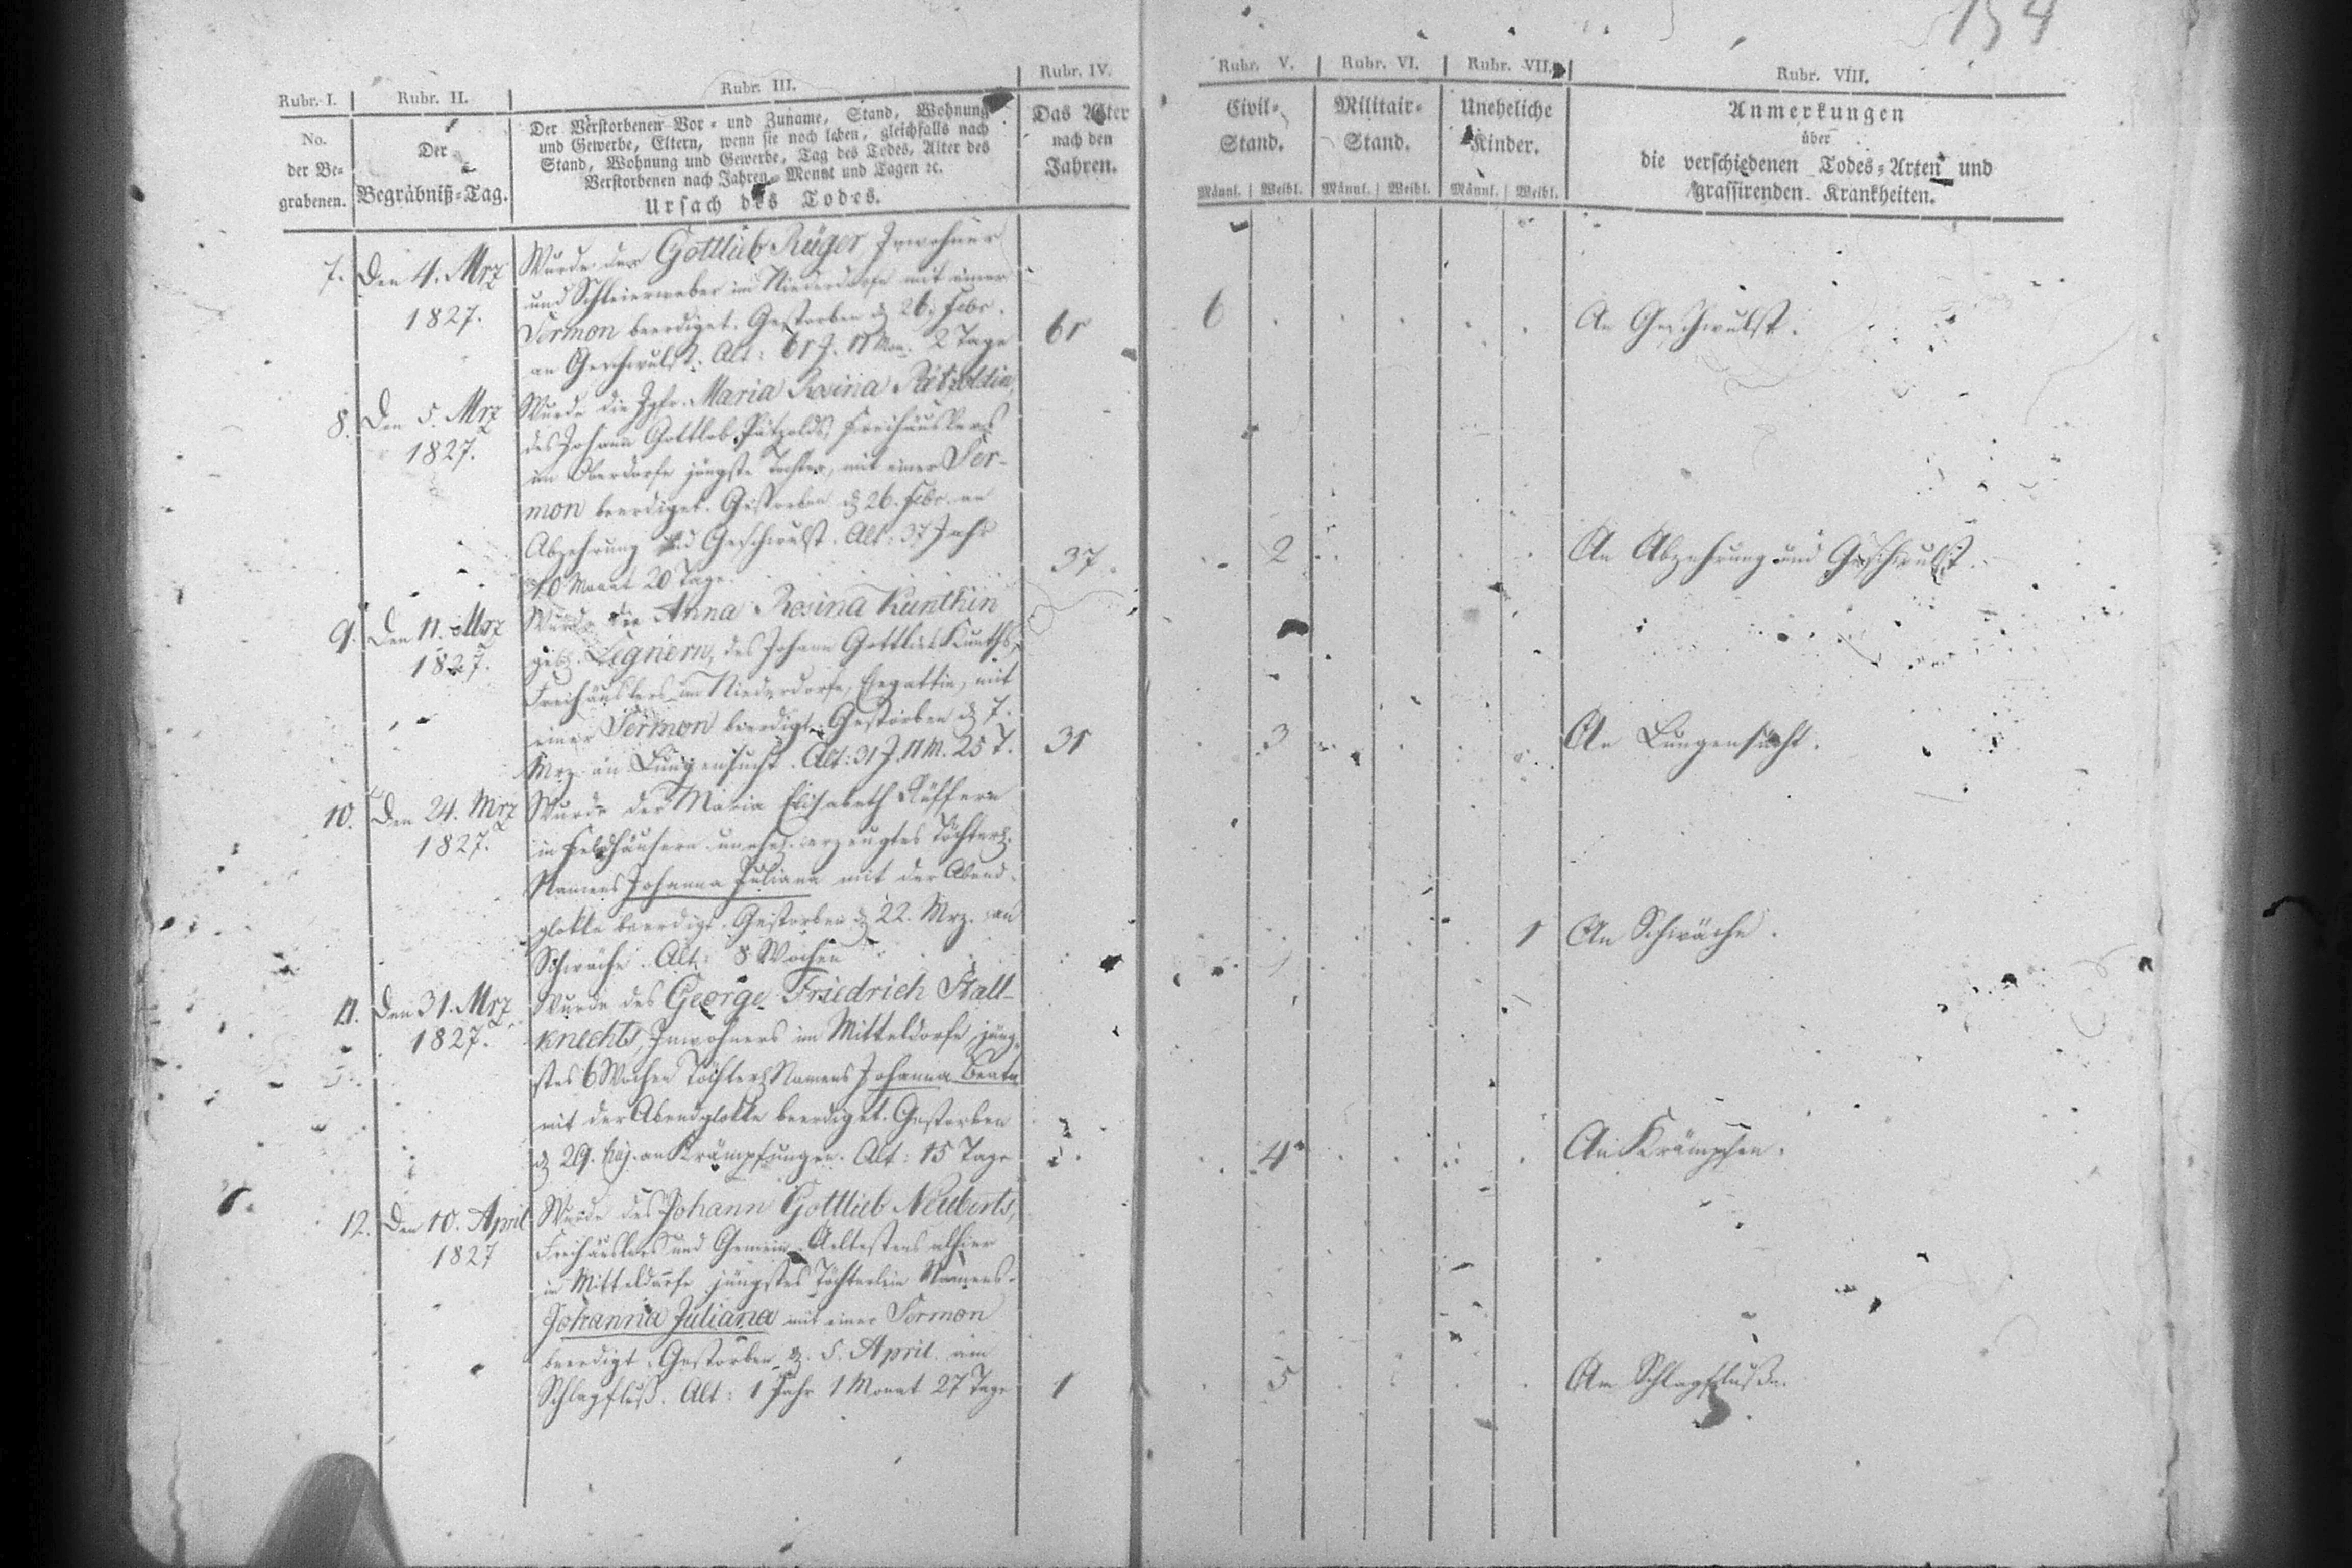 154
Rubr. I. Rubr. II. Rubr. III. Rubr. IV. Rubr. V. Rubr. VI. Rubr. VII. Rubr. VIII.
No.
der Be-
grabenen.
Der
Begräbniß-Tag.
Der Verstorbenen Vor- und Zuname, Stand, Wohnung
und Gewerbe, Eltern, wenn sie noch leben, gleichfalls nach
Stand, Wohnung und Gewerbe, Tag des Todes, Alter des
Verstorbenen nach Jahren, Monat und Tagen ec.
Ursach des Todes.
Das Alter
nach den
Jahren.
Civil-
Stand.
Männl. Weibl.
Militair-
Stand.
Männl. Weibl.
Uneheliche
Kinder.
Männl. Weibl.
Anmerkungen
über
die verschiedenen Todes-Arten und
grassirenden Krankheiten.
7. Den 4. Mrz
1827.
Wurde der Gottlieb Rüger, Inwohner
und Schleierweber im Niederdorfe mit einer
Sermon beerdiget. Gestorben d 26. Febr.
an Geschwulst. Alt: 61 J. 11 Mon. 2 Tage
61
6
An Geschwulst.
8. Den 5. Mrz
1827.
Wurde die Jgfr. Maria Rosina Pätzoldtin,
des Johann Gottlob Pätzolds, Freihäuslers
im Oberdorfe jüngste Tochter, mit einer Ser-
mon beerdiget. Gestorben d 26. Febr. an
Abzehrung und Geschwulst. Alt: 37 Jahr
10 Monat 20 Tage.
37.
2
An Abzehrung und Geschwulst.
9. Den 11. Mrz
1827.
Wurde die Anna Rosina Kunthin
geb. Legnern, des Johann Gottlieb Kunths,
Freihäuslers im Niederdorfe, Ehegattin, mit
einer Sermon beerdigt. Gestorben d 7.
Mrz an Lungensucht. Alt: 31 J. 11 M. 25 T.
31
3
An Lungensucht.
10. Den 24. Mrz
1827.
Wurde der Maria Elisabeth Küffern
in Feldhäusern unehel. erzeugtes Töchterl.
Namens Johanna Juliana mit der Abend-
glokke beerdigt. Gestorben d 22. Mrz. an
Schwäche. Alt: 8 Wochen
1
An Schwäche.
11. Den 31. Mrz
1827.
Wurde des George Friedrich Stall-
knechts, Inwohners im Mitteldorfe, jüng-
stes 6 Wochen Töchterl. Namens Johanna Beata
mit der Abendglokke beerdiget. Gestorben
d 29. huj. an Krämpfungen. Alt: 15 Tage
4
An Krämpfen.
12. Den 10. April
1827
Wurde des Johann Gottlieb Neuberts,
Freihäuslers und Gemein-Aeltestens alhier
im Mitteldorfe jüngstes Töchterlein Namens
Johanna Juliana mit einer Sermon
beerdigt. Gestorben d. 5. April am
Schlagfluß. Alt: 1 Jahr 1 Monat 27 Tage
1
5
Am Schlagfluße.